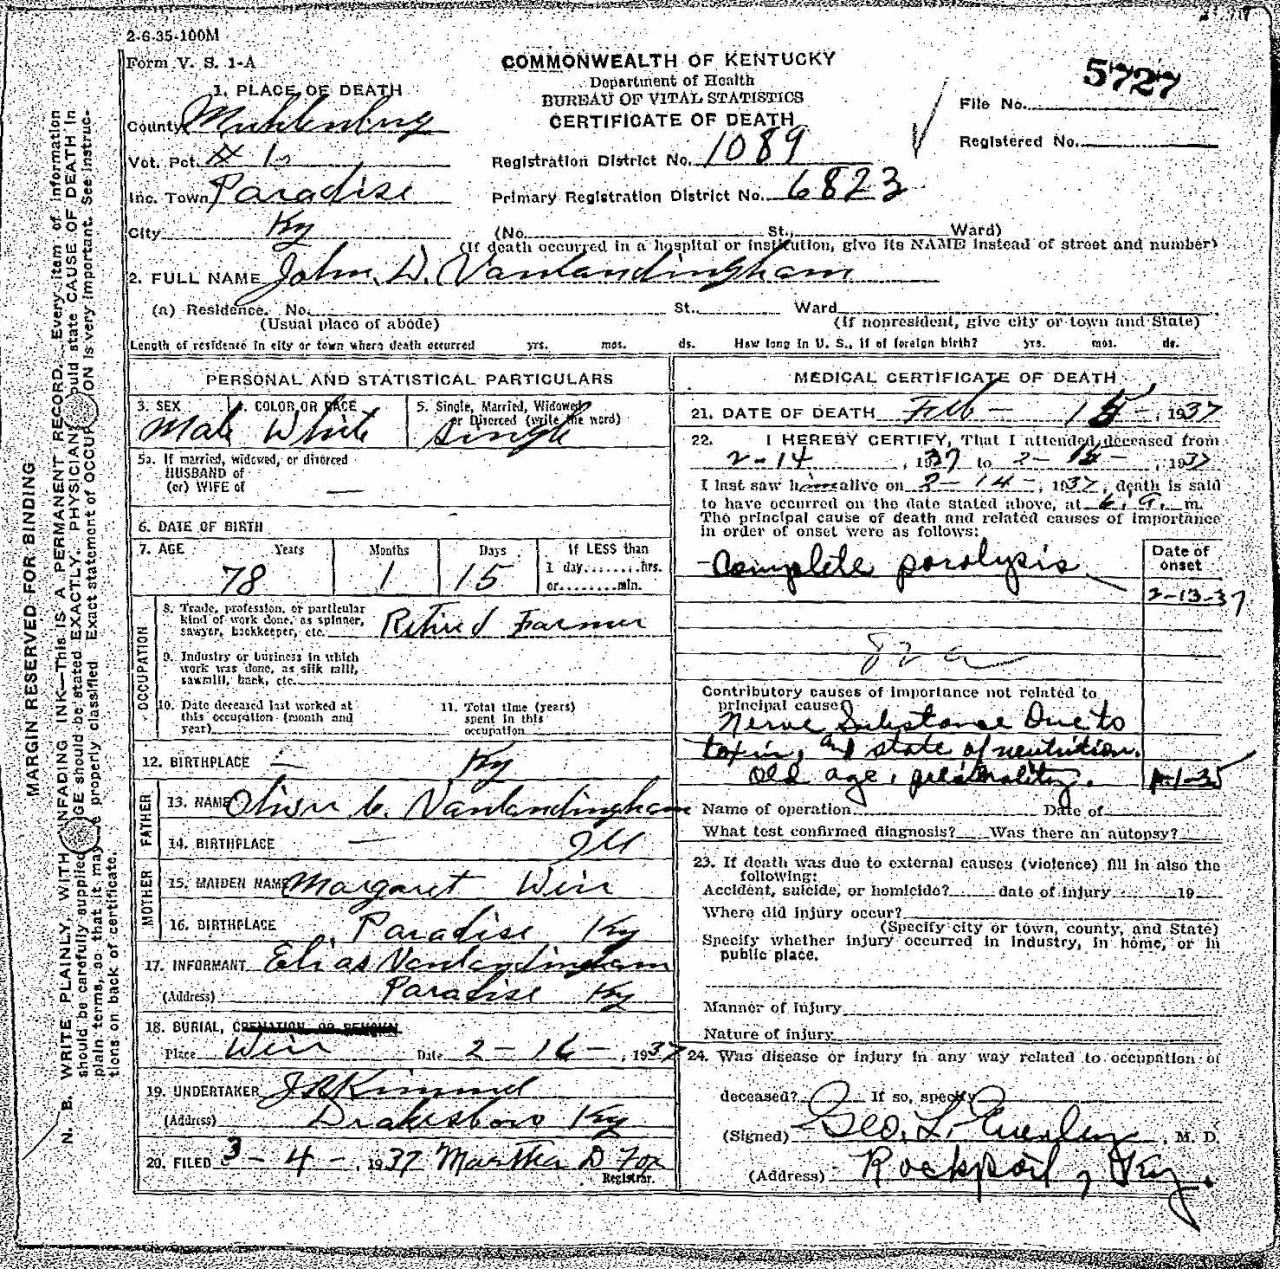 2-6-35-100M
Form V. S. 1-A
COMMONWEALTH OF KENTUCKY
Department of Health
BUREAU OF VITAL STATISTICS
CERTIFICATE OF DEATH
5727
File No.
Registered No.
1. PLACE OF DEATH
County Muhlenburg
Vot. Pct. # 1
Inc. Town Paradise
City Ky
Registration District No. 1089
Primary Registration District No. 6823
(No. St., Ward)
(If death occurred in a hospital or institution, give its NAME instead of street and number)
2. FULL NAME John. D. Vanlandingham
(a) Residence. No. St., Ward
(Usual place of abode) (If nonresident, give city or town and State)
Length of residence in city or town where death occurred yrs. mos. ds. How long in U. S., if of foreign birth? yrs. mos. ds.
PERSONAL AND STATISTICAL PARTICULARS
3. SEX Male
4. COLOR OR RACE White
5. Single, Married, Widowed or Divorced (write the word) Single
5a. If married, widowed, or divorced
HUSBAND of
(or) WIFE of —
6. DATE OF BIRTH
7. AGE Years Months Days If LESS than
1 day.......hrs.
or.......min.
78 1 15
OCCUPATION
8. Trade, profession, or particular
kind of work done, as spinner,
sawyer, bookkeeper, etc. Retired Farmer
9. Industry or business in which
work was done, as silk mill,
sawmill, bank, etc.
10. Date deceased last worked at
this occupation (month and
year)
11. Total time (years)
spent in this
occupation
12. BIRTHPLACE — Ky
FATHER
13. NAME Oliver C. Vanlandingham
14. BIRTHPLACE — Ill
MOTHER
15. MAIDEN NAME Margaret Weir
16. BIRTHPLACE Paradise Ky
17. INFORMANT Elias Vanlandingham
(Address) Paradise Ky
18. BURIAL, CREMATION, OR REMOVAL
Place Weir Date 2-16-, 1937
19. UNDERTAKER J R Kimmel
(Address) Drakesboro Ky
20. FILED 3-4-, 1937 Martha D Fox
Registrar.
MEDICAL CERTIFICATE OF DEATH
21. DATE OF DEATH Feb - 15-, 1937
22. I HEREBY CERTIFY, That I attended deceased from
2-14, 1937 to 2-15-, 1937
I last saw him alive on 2-14-, 1937, death is said
to have occurred on the date stated above, at 6, a. m.
The principal cause of death and related causes of importance
in order of onset were as follows:
Date of onset
Complete paralysis
2-13-37
82a
Contributory causes of importance not related to
principal cause:
Nerve Substance Due to
toxins, and state of nutrition.
old age,
Name of operation Date of
What test confirmed diagnosis? Was there an autopsy?
23. If death was due to external causes (violence) fill in also the
following:
Accident, suicide, or homicide? date of injury 19
Where did injury occur?
(Specify city or town, county, and State)
Specify whether injury occurred in industry, in home, or in
public place.
Manner of injury
Nature of injury
24. Was disease or injury in any way related to occupation of
deceased? If so, specify
(Signed) Geo. L. , M. D.
(Address) Rockport, Ky.
MARGIN RESERVED FOR BINDING
N. B. WRITE PLAINLY, WITH UNFADING INK—This IS A PERMANENT RECORD. Every item of information
should be carefully supplied. AGE should be stated EXACTLY. PHYSICIANS should state CAUSE OF DEATH in
plain terms, so that it may be properly classified. Exact statement of OCCUPATION is very important. See instruc-
tions on back of certificate.